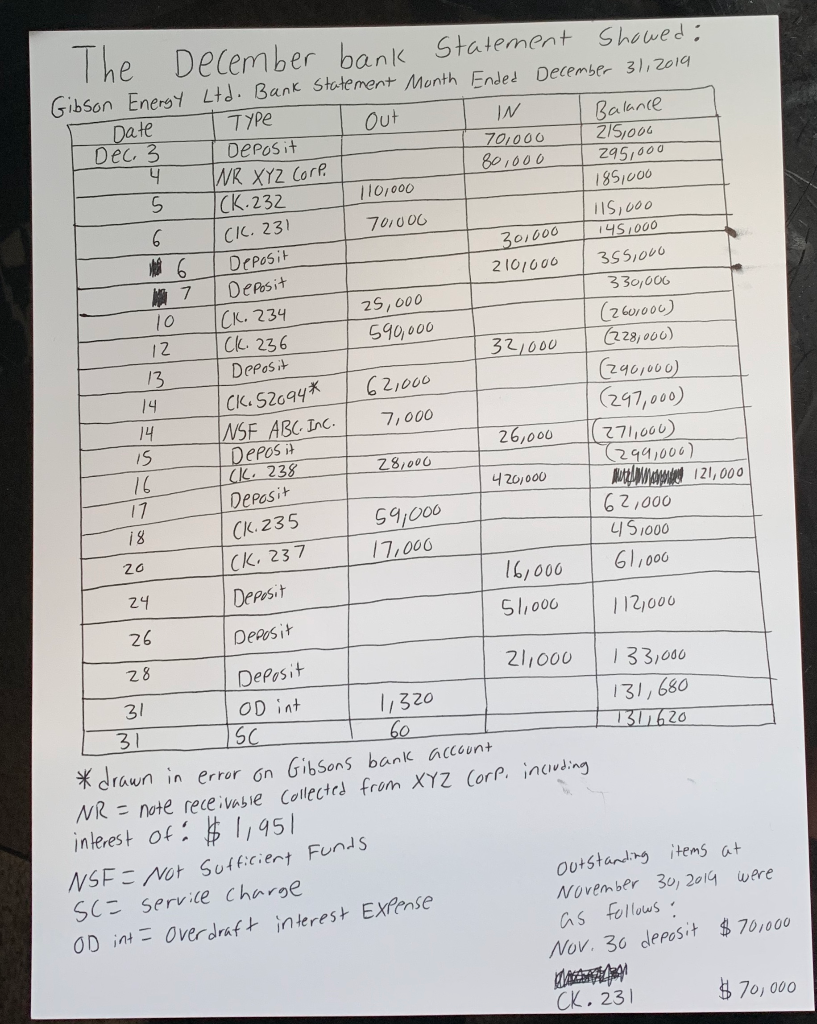 The December bank Statement Showed:
Gibson Energy Ltd. Bank Statement Month Ended December 31, 2019
Date TYPE Out IN Balance
Dec. 3 Deposit 70,000 215,000
4 NR XYZ Corp. 80,000 295,000
5 CK.232 110,000 185,000
6 CK. 231 70,000 115,000
6 Deposit 30,000 145,000
7 Deposit 210,000 355,000
10 CK. 234 25,000 330,000
12 CK. 236 590,000 (260,000)
13 Deposit 32,000 (228,000)
14 CK. 52094* 62,000 (290,000)
14 NSF ABC. Inc. 7,000 (297,000)
15 Deposit 26,000 (271,000)
16 CK. 238 28,000 (299,000)
17 Deposit 420,000 121,000
18 CK.235 59,000 62,000
20 CK. 237 17,000 45,000
24 Deposit 16,000 61,000
26 Deposit 51,000 112,000
28 Deposit 21,000 133,000
31 OD int 1,320 131,680
31 SC 60 131,620
* drawn in error on Gibsons bank account
NR = note receivable collected from XYZ Corp. including
interest of: $ 1,951
NSF = Not Sufficient Funds
SC = service charge
OD int = Overdraft interest Expense
Outstanding items at
November 30, 2019 were
as follows:
Nov. 30 deposit $ 70,000
CK. 231 $ 70,000